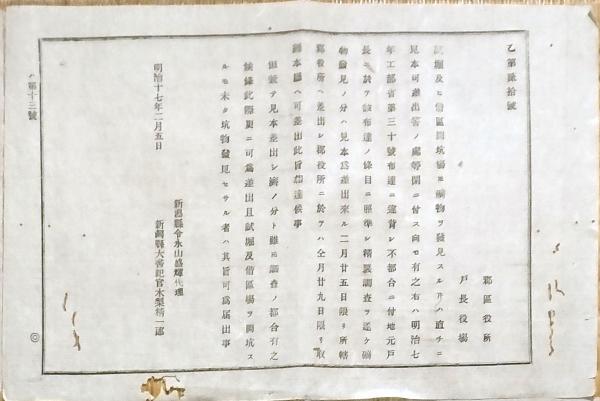 乙第拾號
郡區役所
戸長役塲
試堀及ヒ借區開坑塲ニ礦物ヲ發見スル片ハ直チニ
見本可差出筈ノ處等閑ニ付ス向モ有之右ハ明治七
年工部省第三十號布達ニ違背シ不都合ニ付地元戸
長ニ於テ該布達ノ條目ニ照準シ精 調査ヲ遂ケ礦
物發見ノ分ハ見本爲差出來ル二月廿五日限リ所轄
郡役所ヘ差出シ郡役所ニ於テハ仝月廿九日限リ取
本縣ヘ可差出此旨 達候事
但 テ見本差出シ濟ノ分ト雖モ調査ノ都合有之
候條此際更ニ可爲差出且試堀及借區塲ヲ開坑ス
ルモ未タ坑物發見セサル者ハ其旨可爲届出事
明治十七年二月五日
新潟縣令永山盛輝代理
新潟縣大書記官木梨精一郎
第十三號